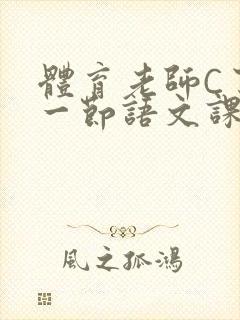 體育老師C
一節語文課
風之孤鴻